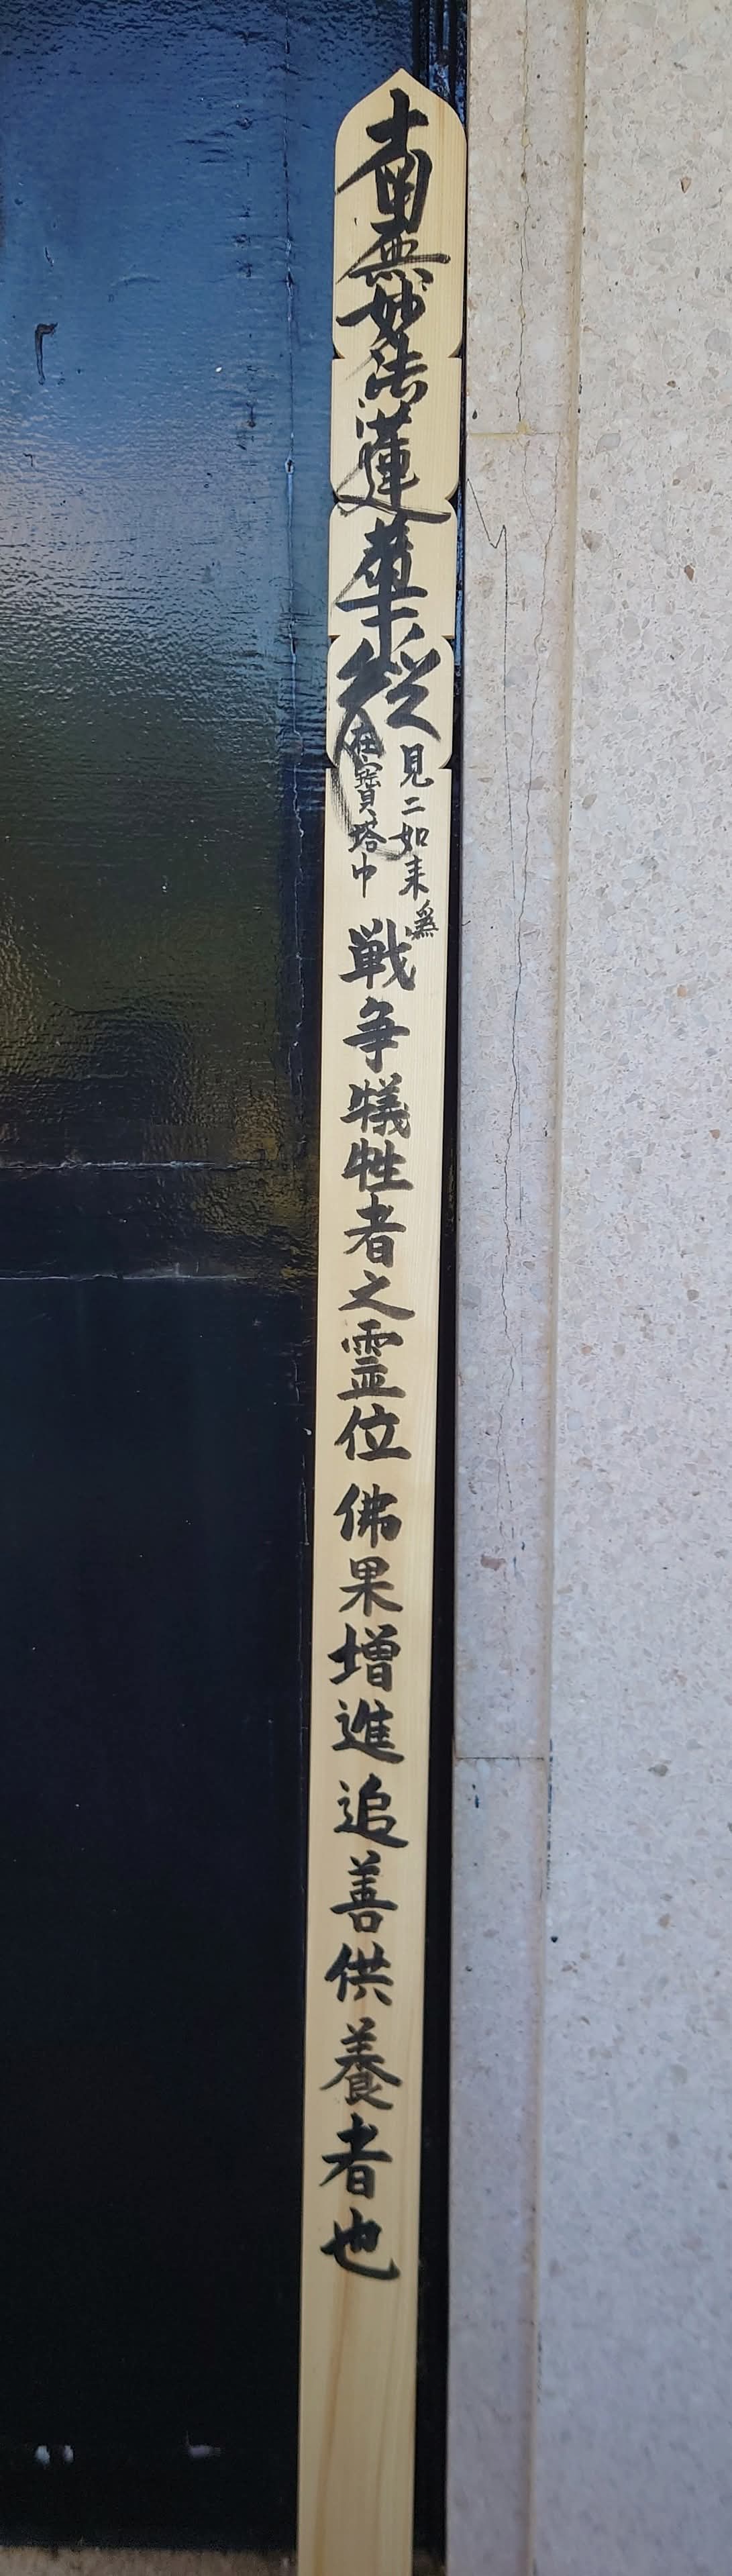 南無妙法蓮華経
見二如来
在寶塔中
為
戦争犠牲者之霊位 佛果増進 追善供養者也